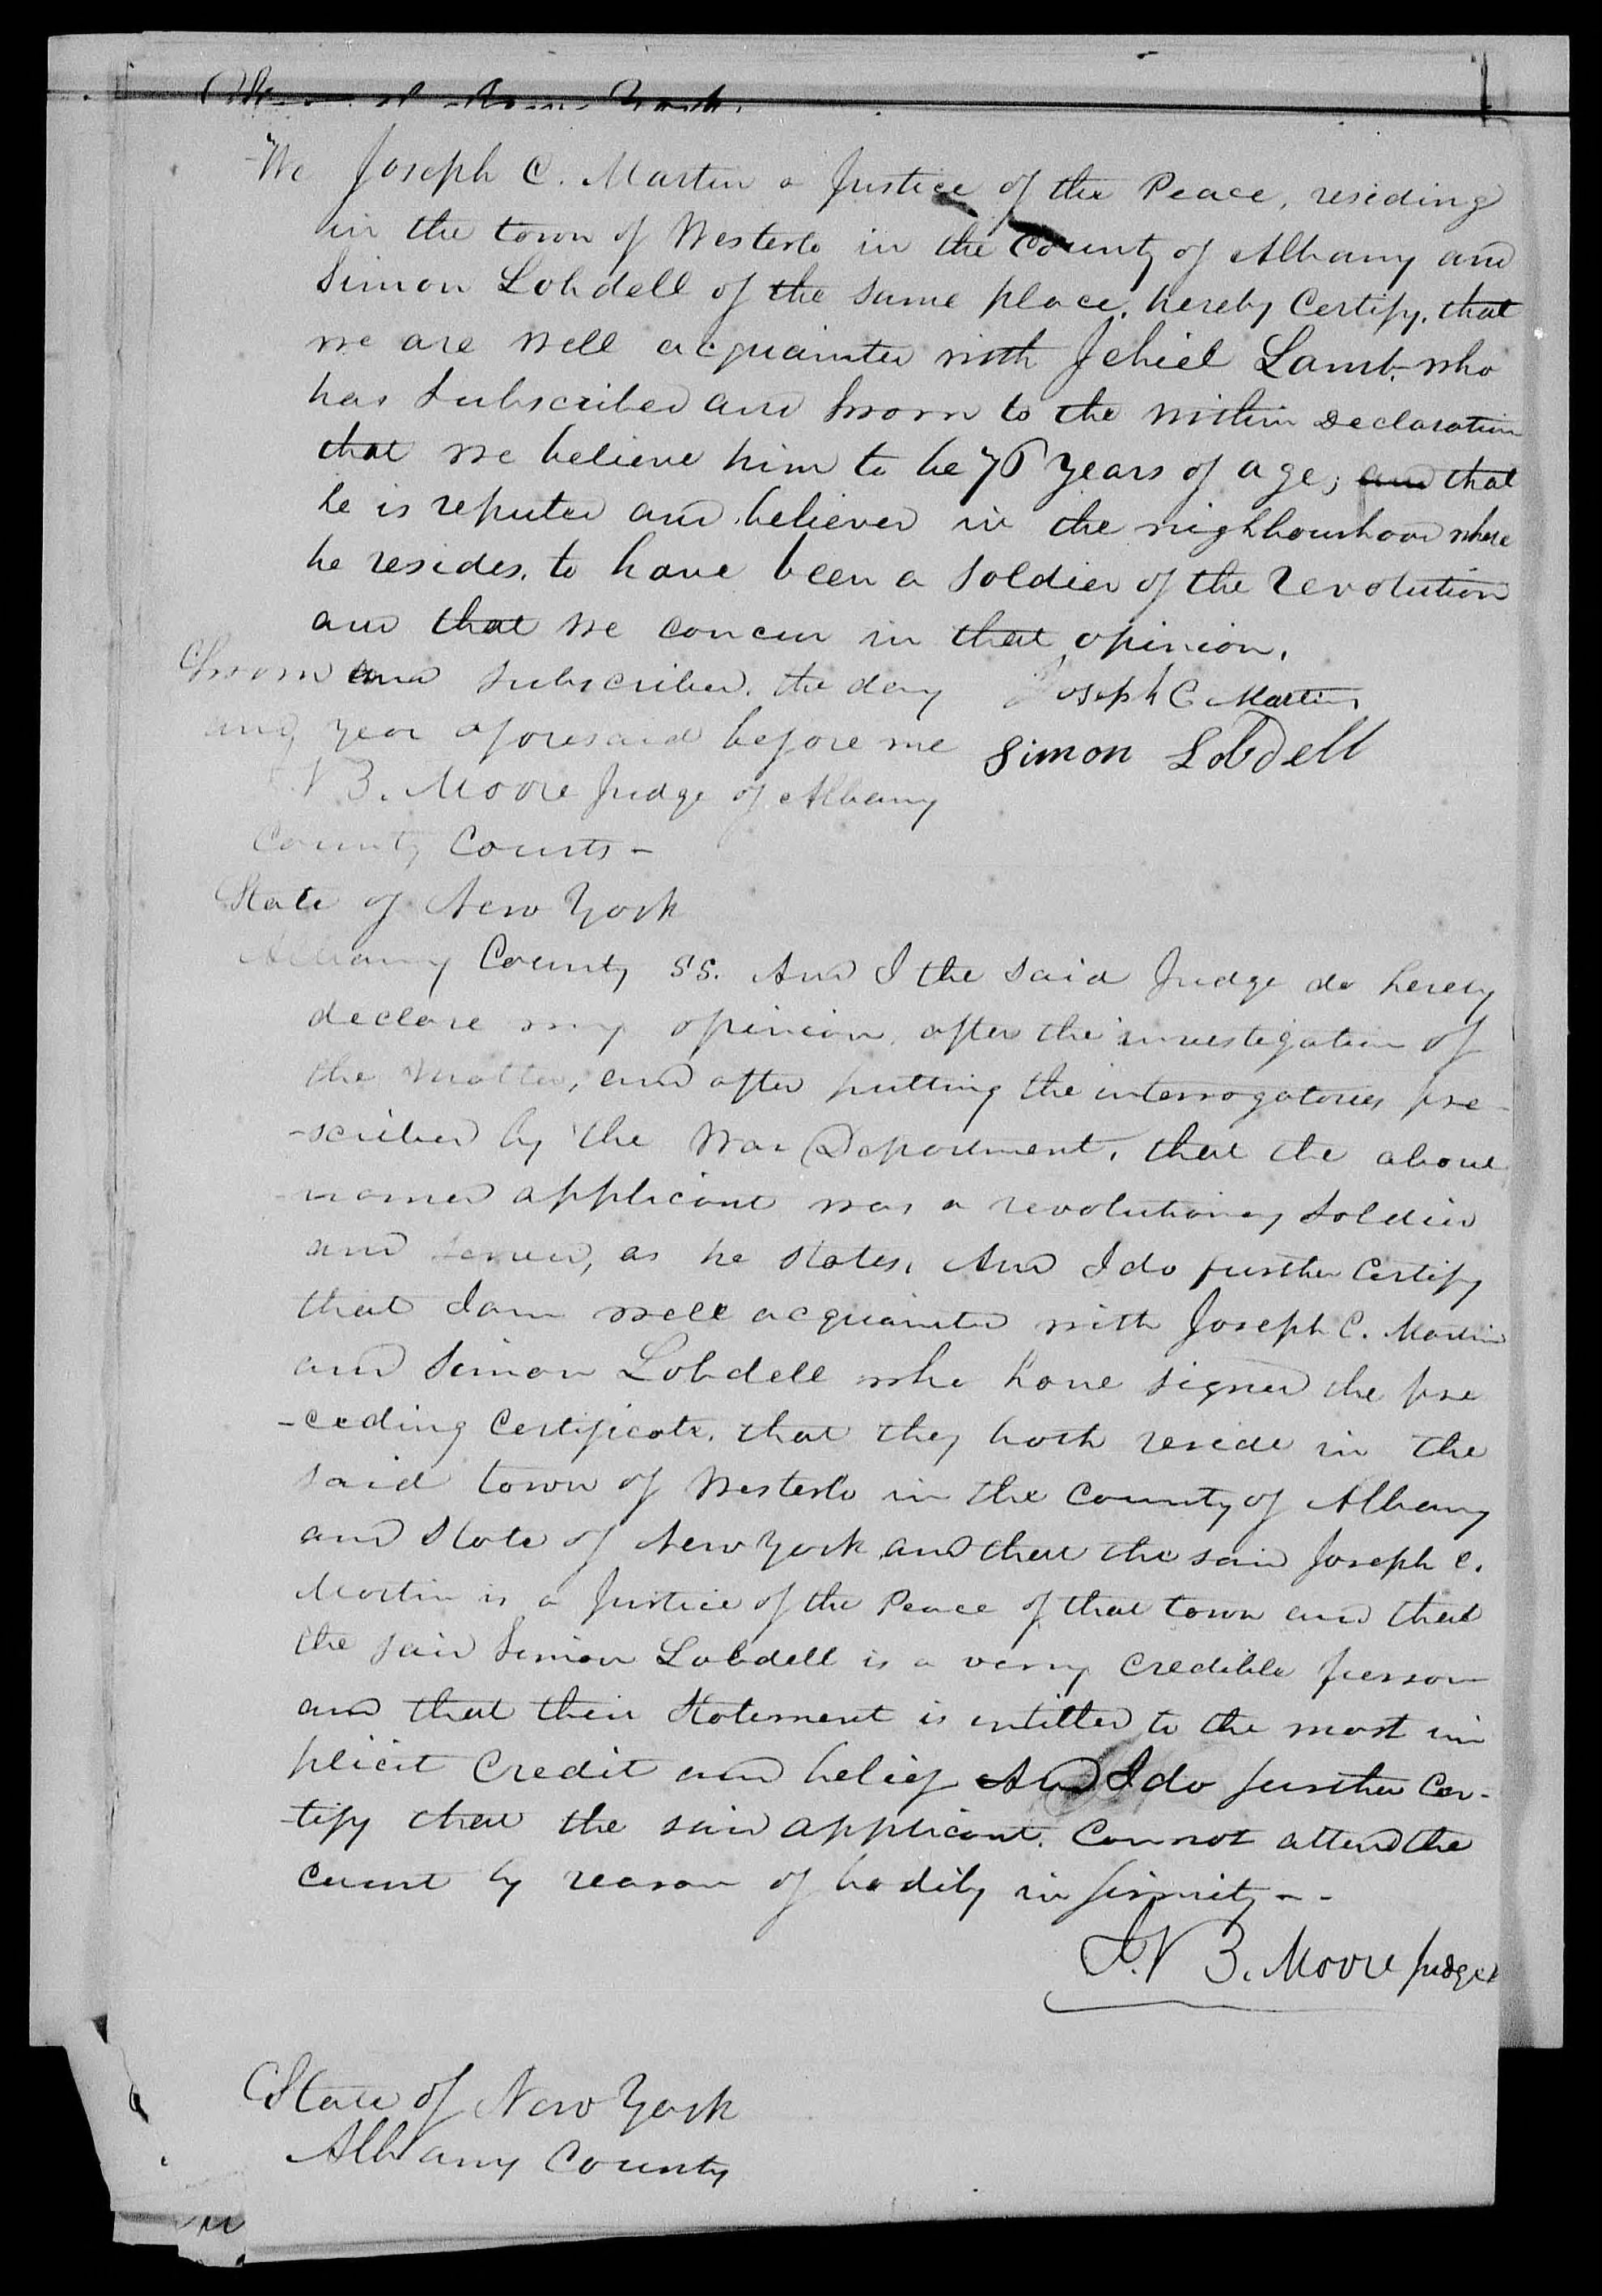 We Joseph C. Martin a Justice of the Peace, residing
in the town of Westerlo in the County of Albany and
Simon Lobdell of the same place, hereby Certify, that
we are well acquainted with Jehiel Lamb, who
has subscribed and sworn to the within declaration
that we believe him to be 76 years of age, and that
he is reputed and believed in the nighbourhood where
he resides, to have been a soldier of the revolution
and that we concur in that opinion.
Sworn and subscribed, the day Joseph C Martin
and year aforesaid before me Simon Lobdell
N B. Moore Judge of Albany
County Courts -
State of New York
Albany County SS. And I the said Judge do hereby
declare my opinion, after the investigation of
the matter, and after putting the interrogatories pre-
-scribed by the War Department, that the above
named applicant was a revolutionary soldier
and served, as he states, And I do further Certify
that I am well acquainted with Joseph C. Martin
and Simon Lobdell who have signed the pre
-ceding Certificate, that they both reside in the
said town of Westerlo in the County of Albany
and State of New York and that the said Joseph C.
Martin is a Justice of the Peace of that town and that
the said Simon Lobdell is a very credible person
and that their statement is intitled to the most im
plicit Credit and belief And I do further Cer-
-tify that the said applicant, Cannot attend the
Court by reason of bodily infirmity - -
N B. Moore Judge
State of New York
Albany County